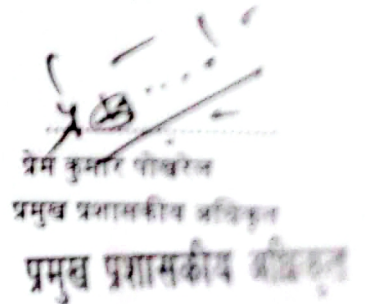 प्रेम कुमार पोखरेल
प्रमुख प्रशासकीय अधिकृत
प्रमुख प्रशासकीय अधिकृत